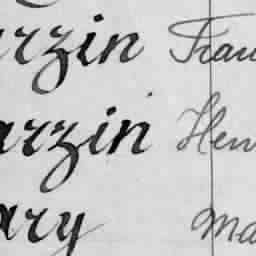 arzin Fran
arzin Hen
ary Ma